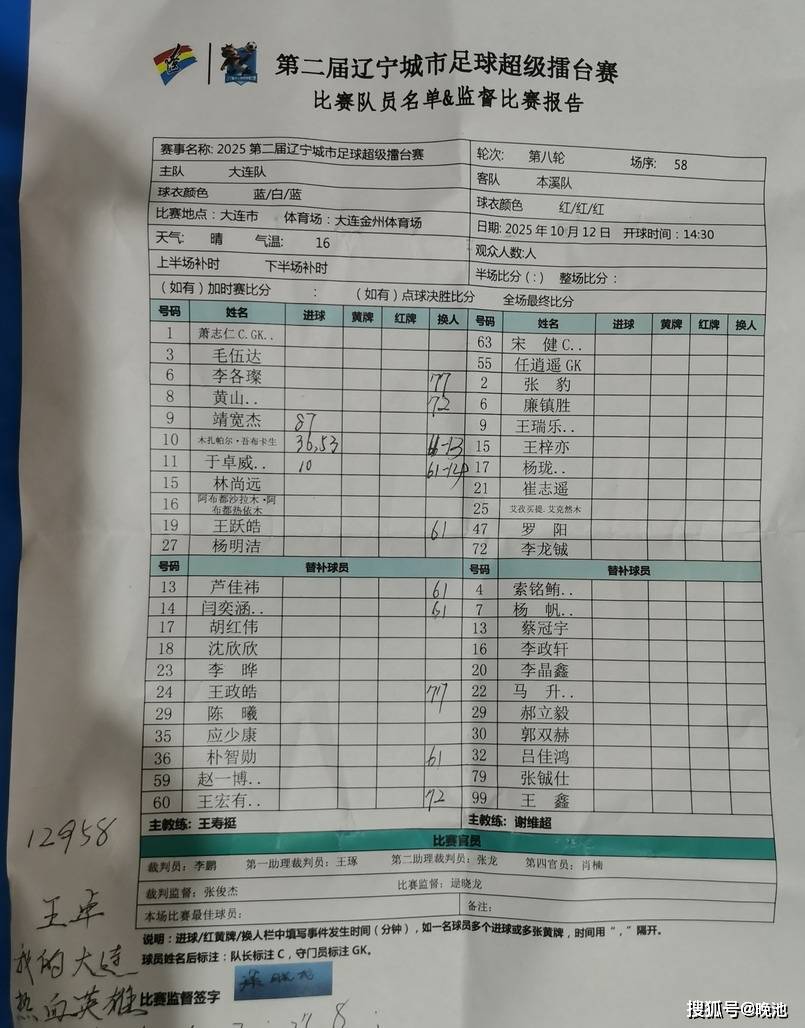 第二届辽宁城市足球超级擂台赛
比赛队员名单&监督比赛报告
赛事名称: 2025 第二届辽宁城市足球超级擂台赛 轮次: 第八轮 场序: 58
主队 大连队 客队 本溪队
球衣颜色 蓝/白/蓝 球衣颜色 红/红/红
比赛地点：大连市 体育场：大连金州体育场 日期: 2025 年 10 月 12 日 开球时间：14:30
天气： 晴 气温： 16 观众人数:人
上半场补时 下半场补时 半场比分 ( : ) 整场比分 :
（如有）加时赛比分 : （如有）点球决胜比分 全场最终比分
号码 姓名 进球 黄牌 红牌 换人 号码 姓名 进球 黄牌 红牌 换人
1 萧志仁 C.GK.. 63 宋 健 C..
3 毛伍达 55 任逍遥 GK
6 李各璨 77 2 张 豹
8 黄山.. 72 6 廉镇胜
9 靖宽杰 87 9 王瑞乐..
10 木扎帕尔·吾布卡生 36,53 15 王梓亦
11 于卓威.. 10 17 杨珑..
15 林尚远 21 崔志遥
16 阿布都沙拉木·阿布都热依木 25 艾孜买提.艾克然木
19 王跃皓 61 47 罗 阳
27 杨明洁 72 李龙铖
号码 替补球员 号码 替补球员
13 芦佳祎 61 4 索铭鲔..
14 闫奕涵.. 61 7 杨 帆..
17 胡红伟 13 蔡冠宇
18 沈欣欣 16 李政轩
23 李 晔 20 李晶鑫
24 王政皓 77 22 马 升..
29 陈 曦 29 郝立毅
35 应少康 30 郭双赫
36 朴智勋 61 32 吕佳鸿
59 赵一博.. 79 张铖仕
60 王宏有.. 72 99 王 鑫
主教练：王寿挺 主教练：谢维超
比赛官员
裁判员：李鹏 第一助理裁判员：王琢 第二助理裁判员：张龙 第四官员：肖楠
裁判监督：张俊杰 比赛监督：逯晓龙
本场比赛最佳球员： 备注：
说明：进球/红黄牌/换人栏中填写事件发生时间（分钟），如一名球员多个进球或多张黄牌，时间用“，”隔开。
球员姓名后标注：队长标注 C，守门员标注 GK。
比赛监督签字
12958
王卓
我的大连
热血英雄
搜狐号@晚池